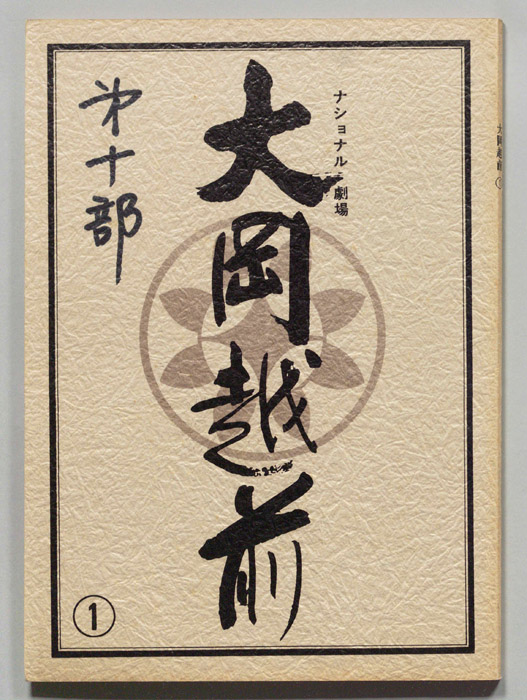 ナショナル劇場
大岡越前
第十部
1
大岡越前 1